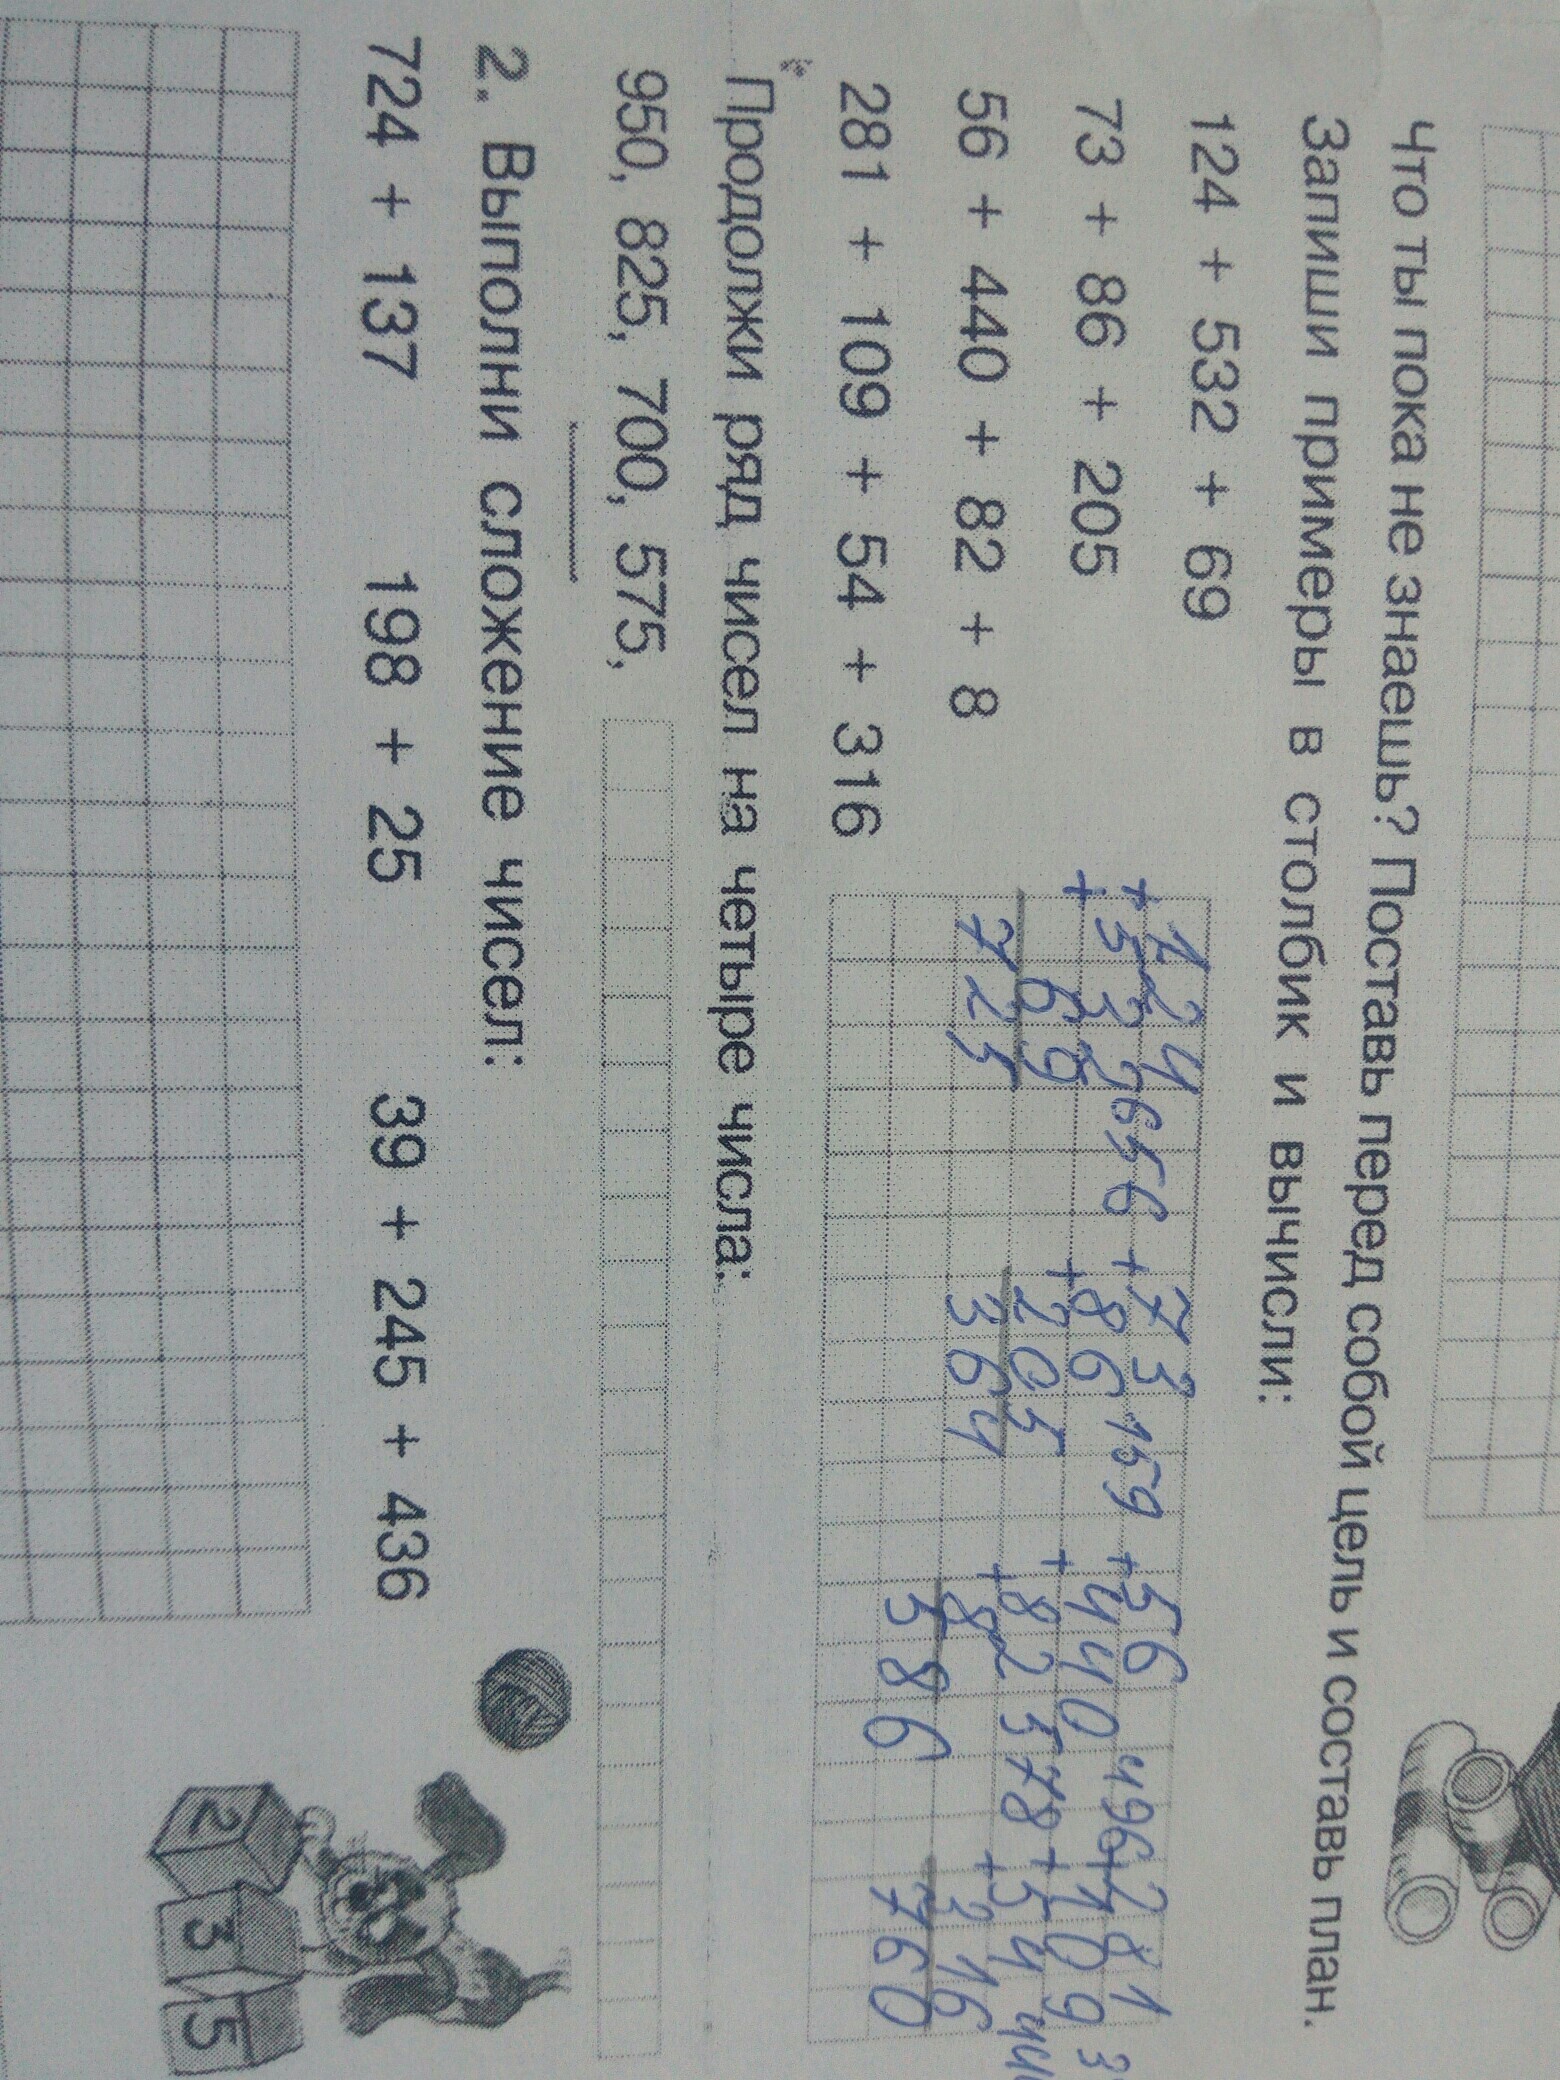 Что ты пока не знаешь? Поставь перед собой цель и составь план.
Запиши примеры в столбик и вычисли:
124 + 532 + 69
73 + 86 + 205
56 + 440 + 82 + 8
281 + 109 + 54 + 316
+ 124
+ 532 656
69
725
+ 73
+ 86 159
205
364
+ 56
+ 440 496
+ 82 578
8
586
+ 281
+ 109
+ 54
316
760
Продолжи ряд чисел на четыре числа:
950, 825, 700, 575,
2. Выполни сложение чисел:
724 + 137 198 + 25 39 + 245 + 436
2 3 5